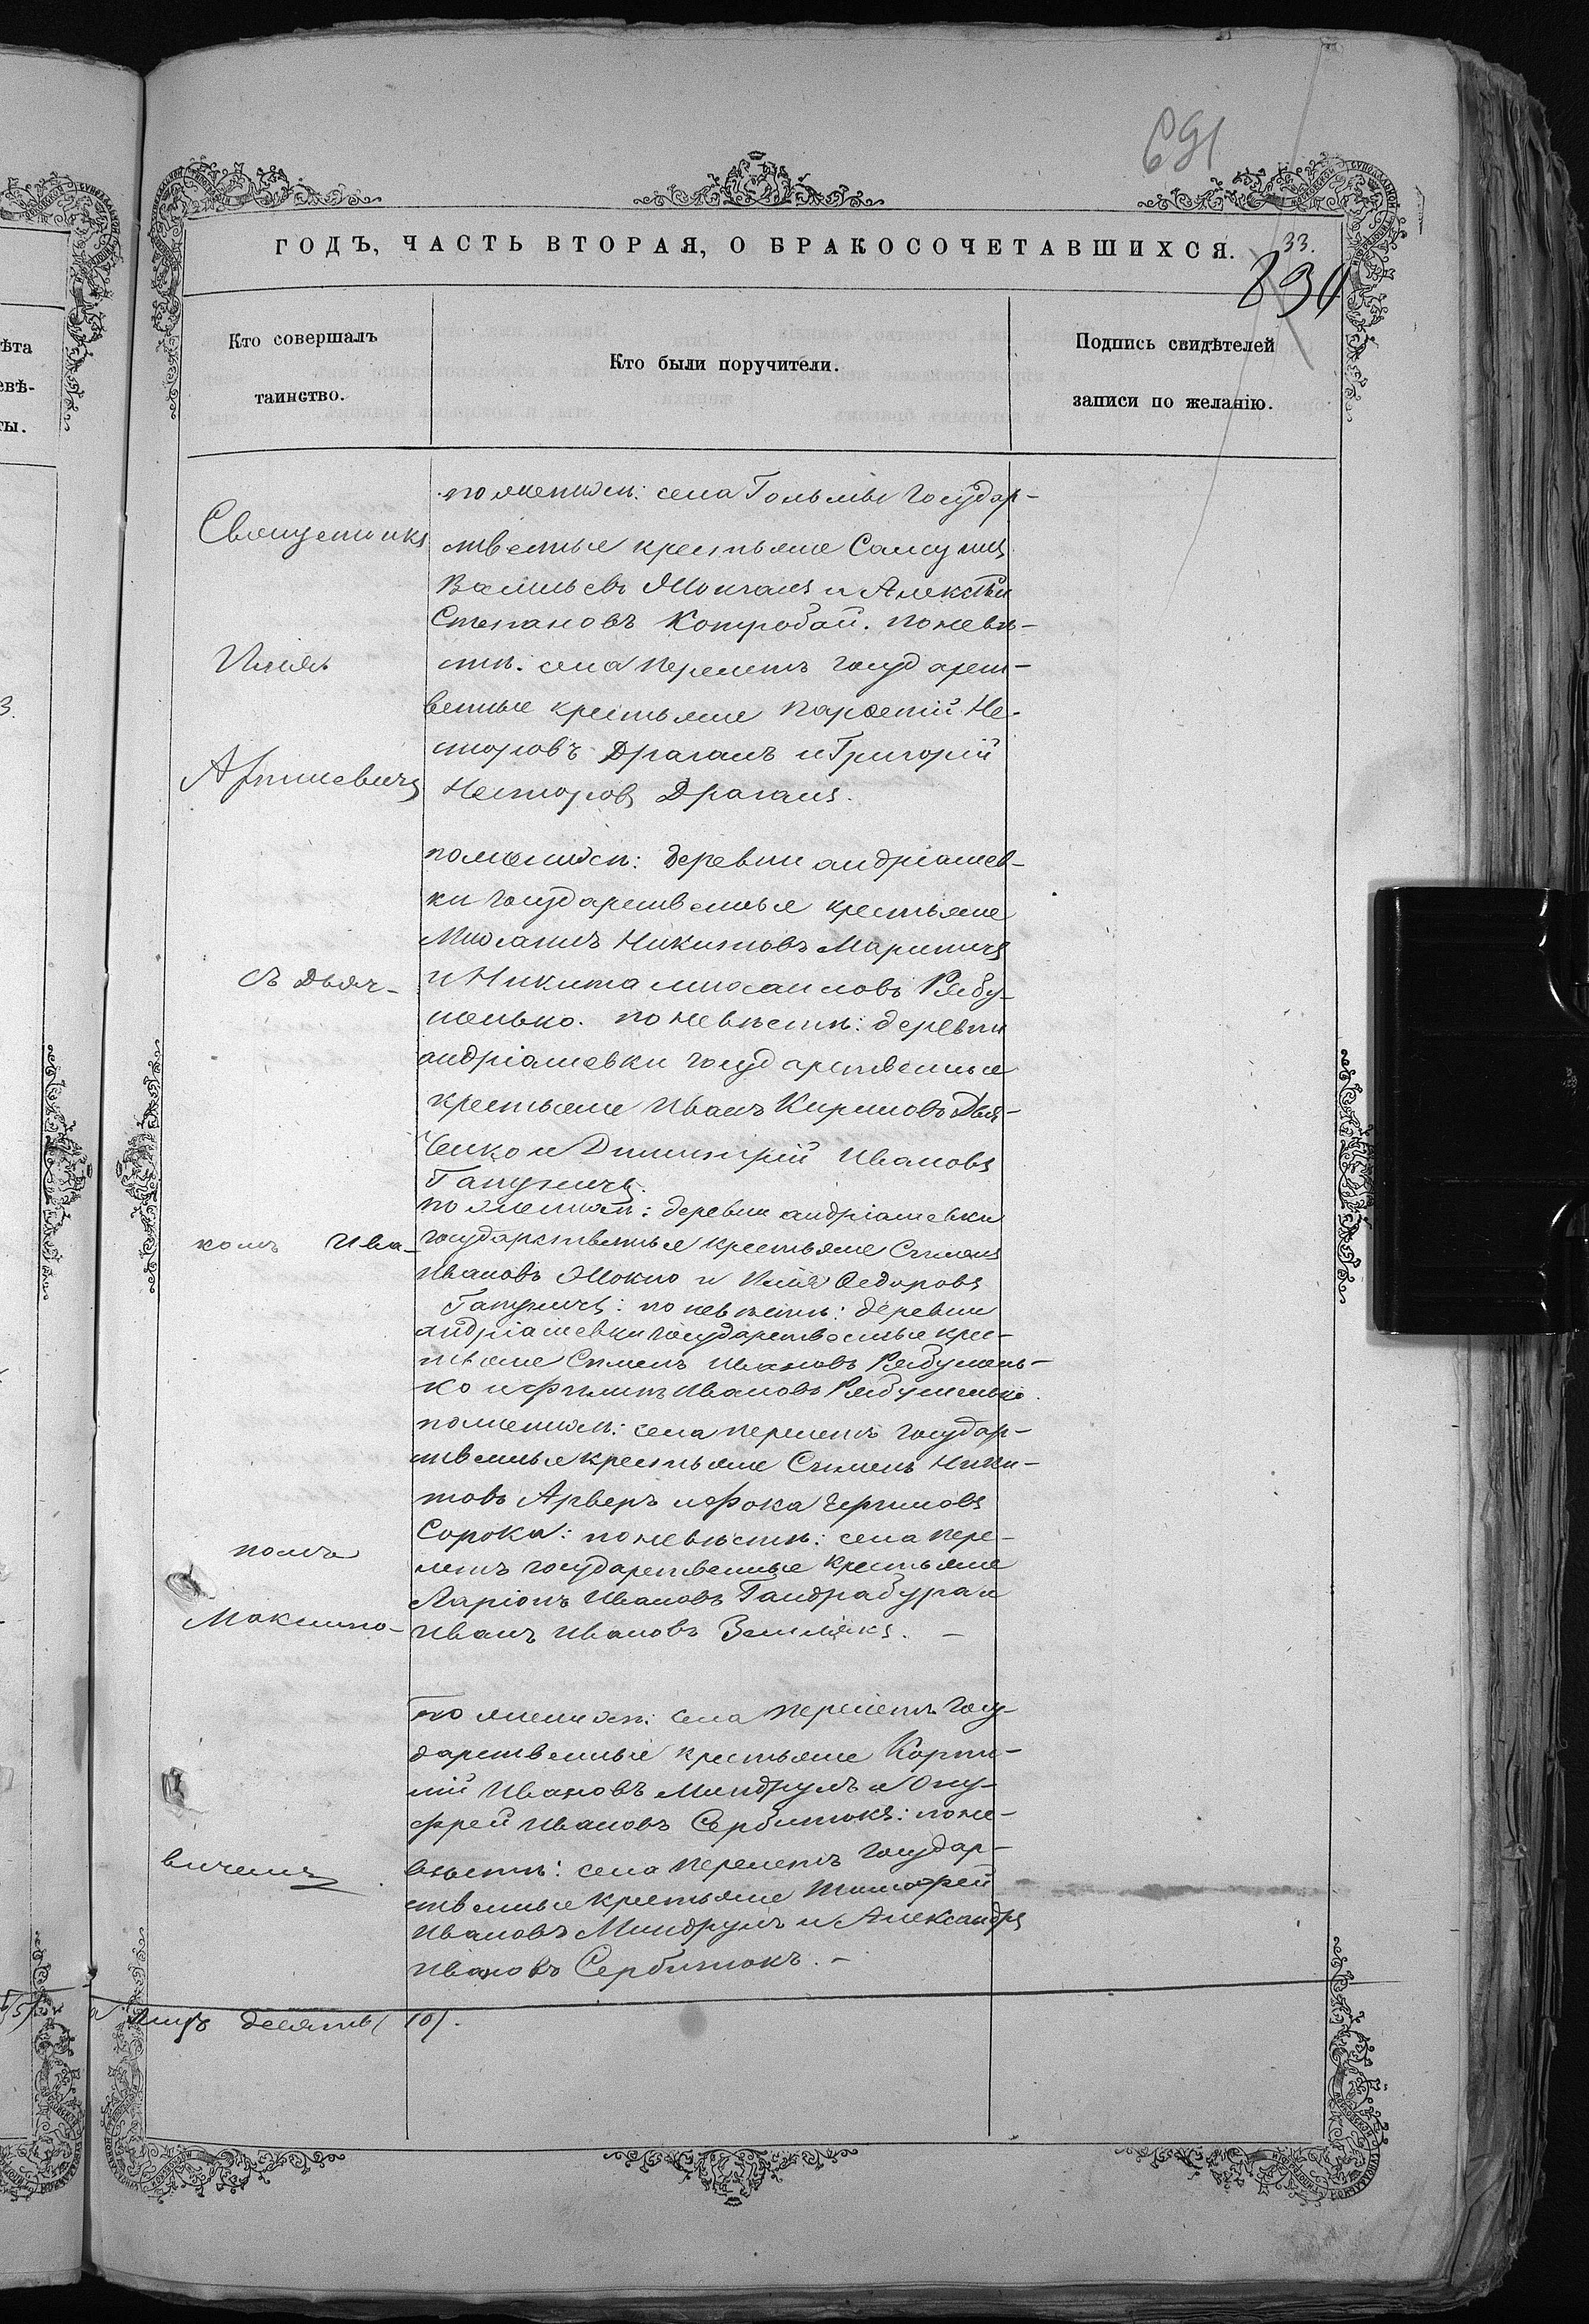 691
ГОДЪ, ЧАСТЬ ВТОРАЯ, О БРАКОСОЧЕТАВШИХСЯ.
33.
830
Кто совершалъ
таинство.
Кто были поручители.
Подпись свидѣтелей
записи по желанію.
ѣта
евѣ-
ты.
Священникъ
Илія
съ Дьяч-
комъ Ива-
номъ
Максимо-
вичемъ
по женихѣ: села Гольмы Государ-
ственные крестьяне Самуилъ
Васильевъ Мокчанъ и Алексѣй
Степановъ Котробай. по невѣ-
стѣ. села Перелетъ государст-
венные крестьяне Парфетій Не-
сторовъ Драганъ и Григорій
Несторовъ Драганъ.
по женихѣ: деревни андріашев-
ки государственные крестьяне
Михаилъ Никитовъ Мариничъ
и Никита михаиловъ Рябу-
шенько. по невѣстѣ: деревни
андріашевки государственные
крестьяне Иванъ Кириловъ Дья-
ченко и Димитрій Ивановъ
Гапуничъ.
по женихѣ: деревни андріашевки
государственные крестьяне Симеонъ
Ивановъ Мокно и Илія Федоровъ
Гапуничъ: по невѣстѣ: деревни
андріашевки государственные крес-
тьяне Симеонъ Ивановъ Рябушень-
ко и Филипъ Ивановъ Рябушенько.
по женихѣ: села перелетъ государ-
ственные крестьяне Симеонъ Ники-
товъ Арверъ и Фока Ефимовъ
Сорока: по невѣстѣ: села пере-
летъ государственные крестьяне
Ларіонъ Ивановъ Гандрабура и
Иванъ Ивановъ Землякъ. —
по женихѣ: села перелетъ госу-
дарственные крестьяне Корни-
лій Ивановъ Миндрулъ и Ону-
фрей Ивановъ Сербинокъ: по не-
вѣстѣ: села перелетъ государ-
ственные крестьяне Тимофей
Ивановъ Миндрулъ и Александръ
Ивановъ Сербинокъ. —
а лицъ десять (10).